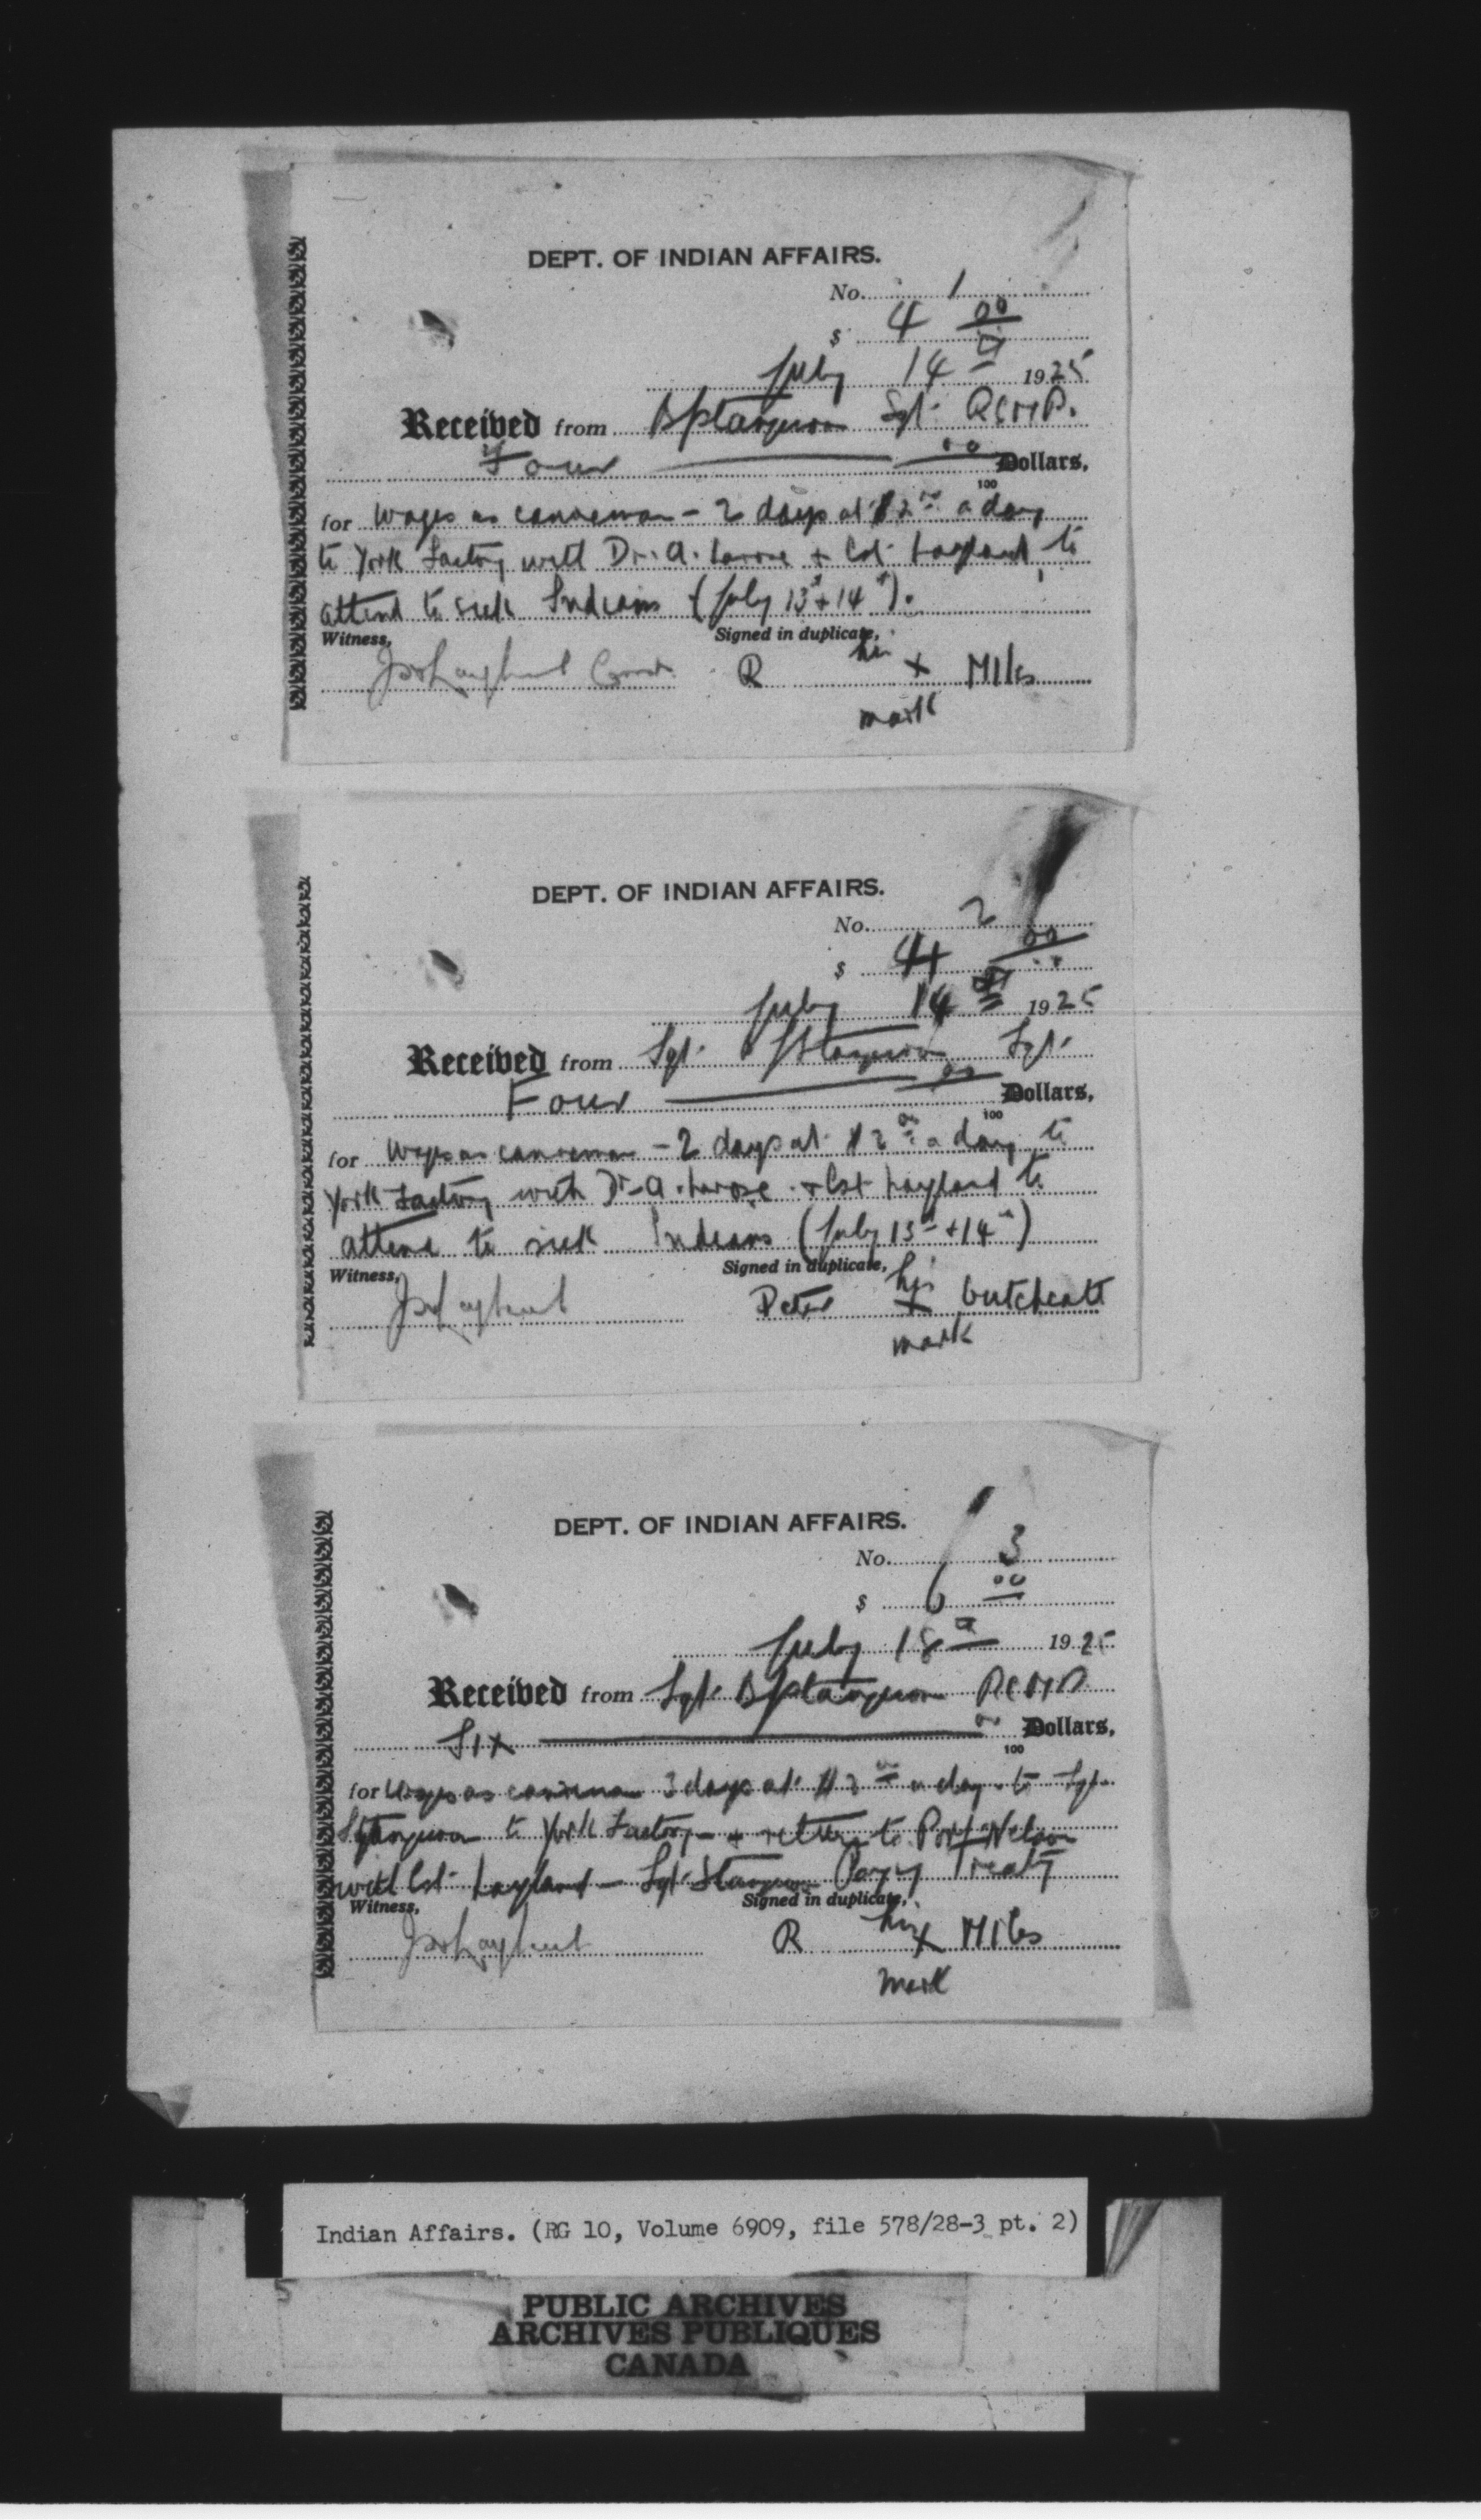 DEPT. OF INDIAN AFFAIRS.
No. 1
$ 4 00
July 14th 1925
Received from Sgt. RCMP.
Four 00/100 Dollars,
for wages as canoeman - 2 days at $2 00 a day
to York Factory with Dr. A. Larose + Cst. Layland to
attend to sick Indians (July 13th + 14th).
Witness, Signed in duplicate,
Layland Const. R his x Miles
mark
DEPT. OF INDIAN AFFAIRS.
No. 2
$ 4 00
July 14th 1925
Received from Sgt. Sgt.
Four 00/100 Dollars,
for wages as canoeman - 2 days at $2 00 a day to
York Factory with Dr. A. Larose + Cst Layland to
attend to sick Indians (July 13th + 14th)
Witness, Signed in duplicate,
Layland Peter his x
mark
DEPT. OF INDIAN AFFAIRS.
No. 3
$ 6 00
July 18th 1925
Received from Sgt. RCMP
Six 00/100 Dollars,
for wages as canoeman 3 days at $2 00 a day to Sgt.
to York Factory - + return to Port Nelson
with Cst. Layland - Sgt. Paying Treaty
Witness, Signed in duplicate,
Layland R his x Miles
mark
Indian Affairs. (RG 10, Volume 6909, file 578/28-3 pt. 2)
PUBLIC ARCHIVES
ARCHIVES PUBLIQUES
CANADA